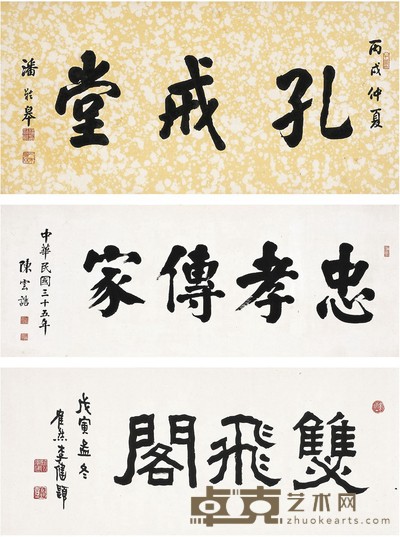 丙戌仲夏
孔戒堂
潘齡皋
忠孝傳家
中華民國三十五年
陳雲誥
雙飛閣
戊寅孟冬
李健題
卓克艺术网
zhuokearts.com